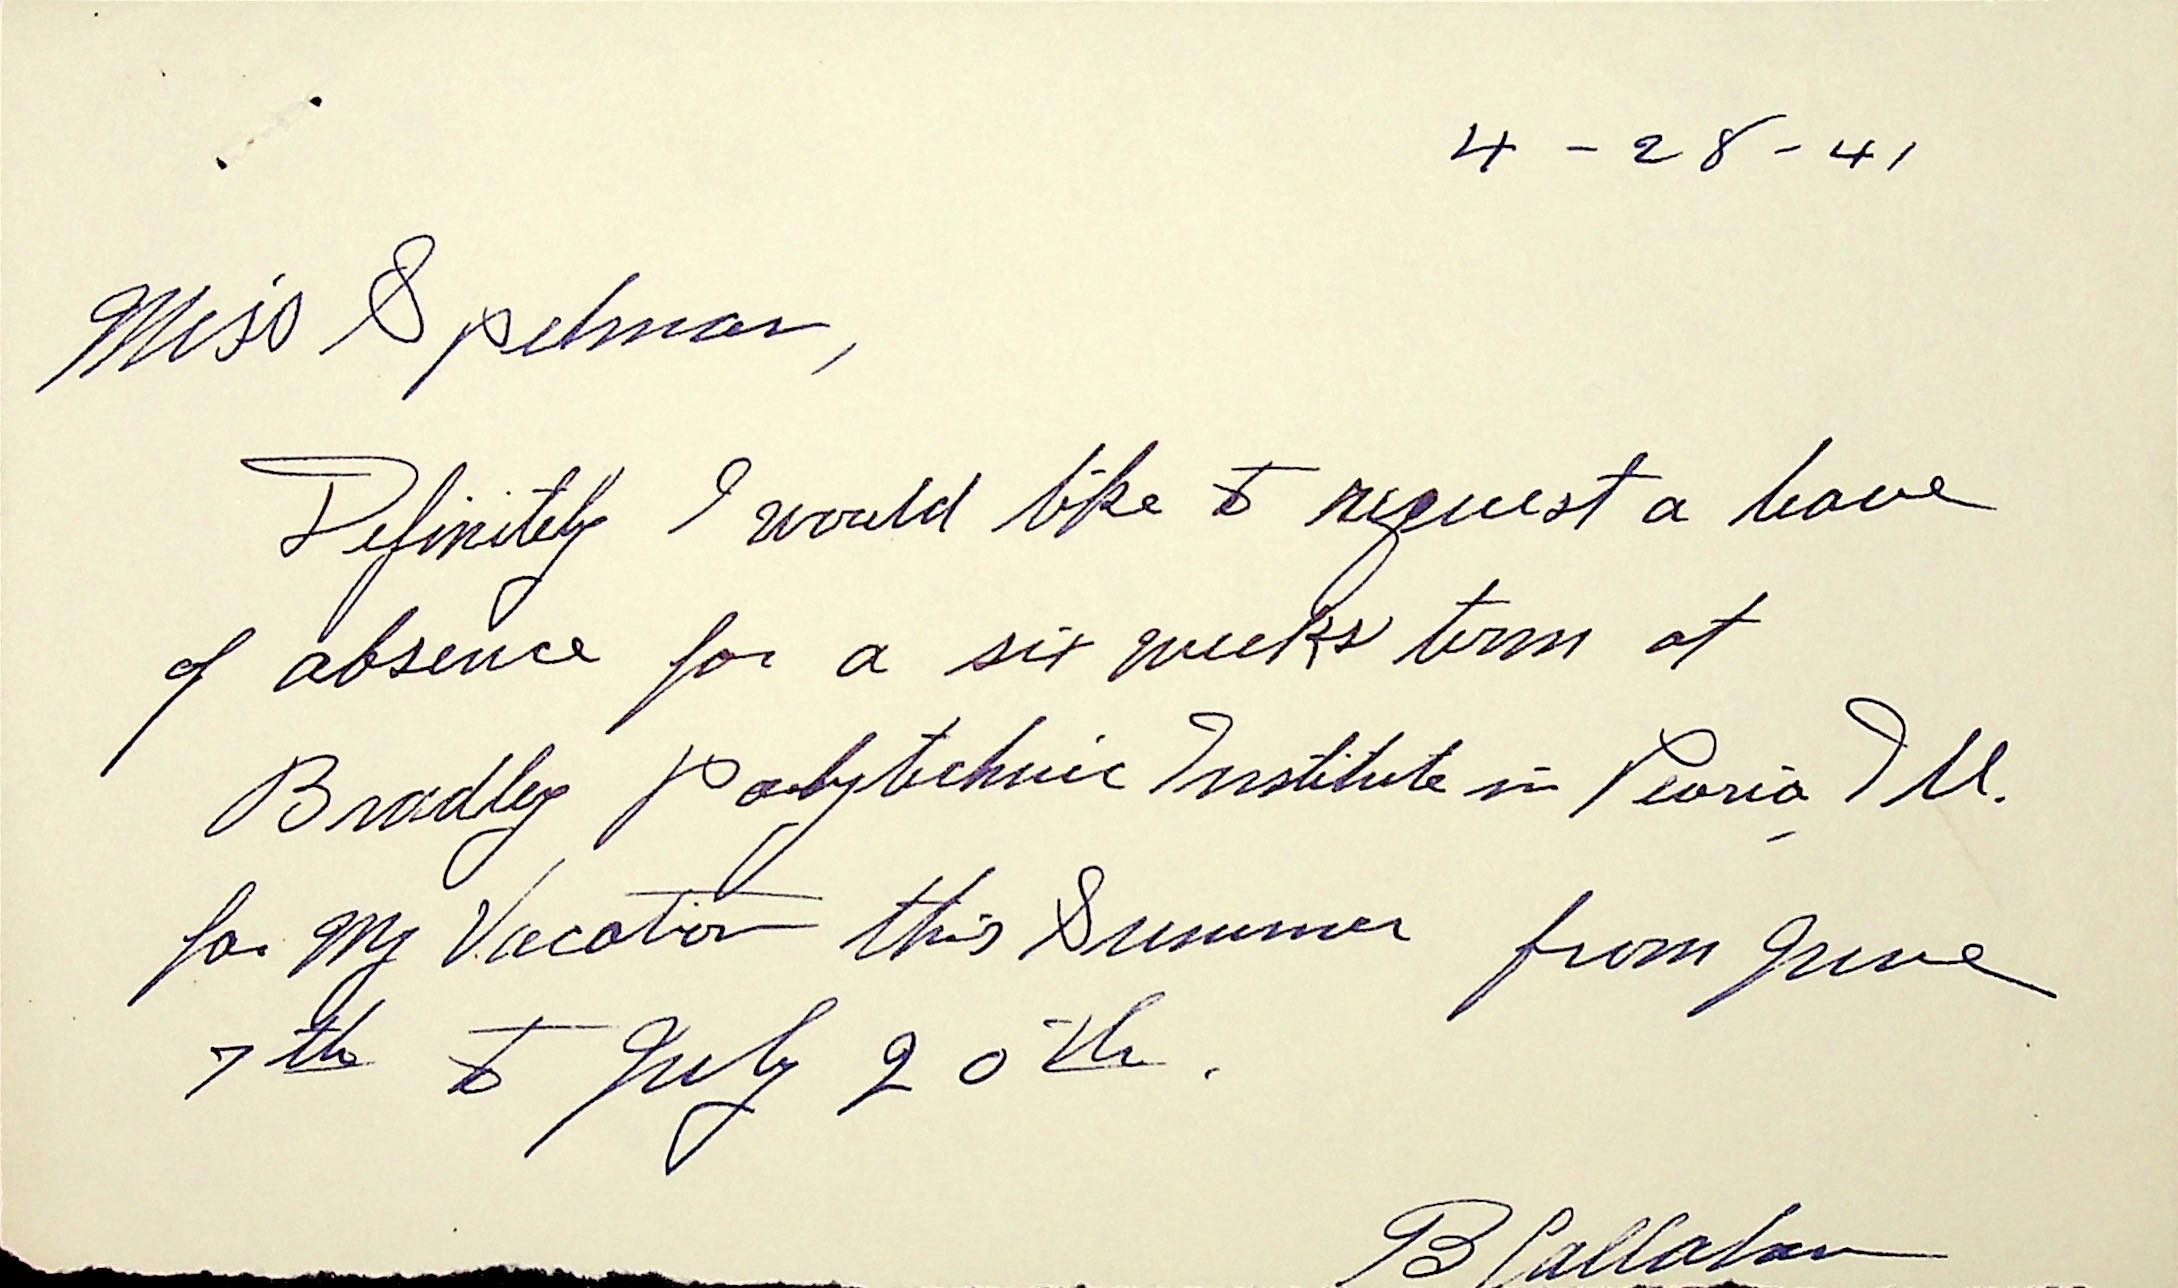 4-28-41
Miss Spelman,
Definitely I would like to request a leave
of absence for a six weeks term at
Bradley Polytechnic Institute in Peoria, Ill.
for my Vacation this Summer from June
7th to July 20th.
B Callahan